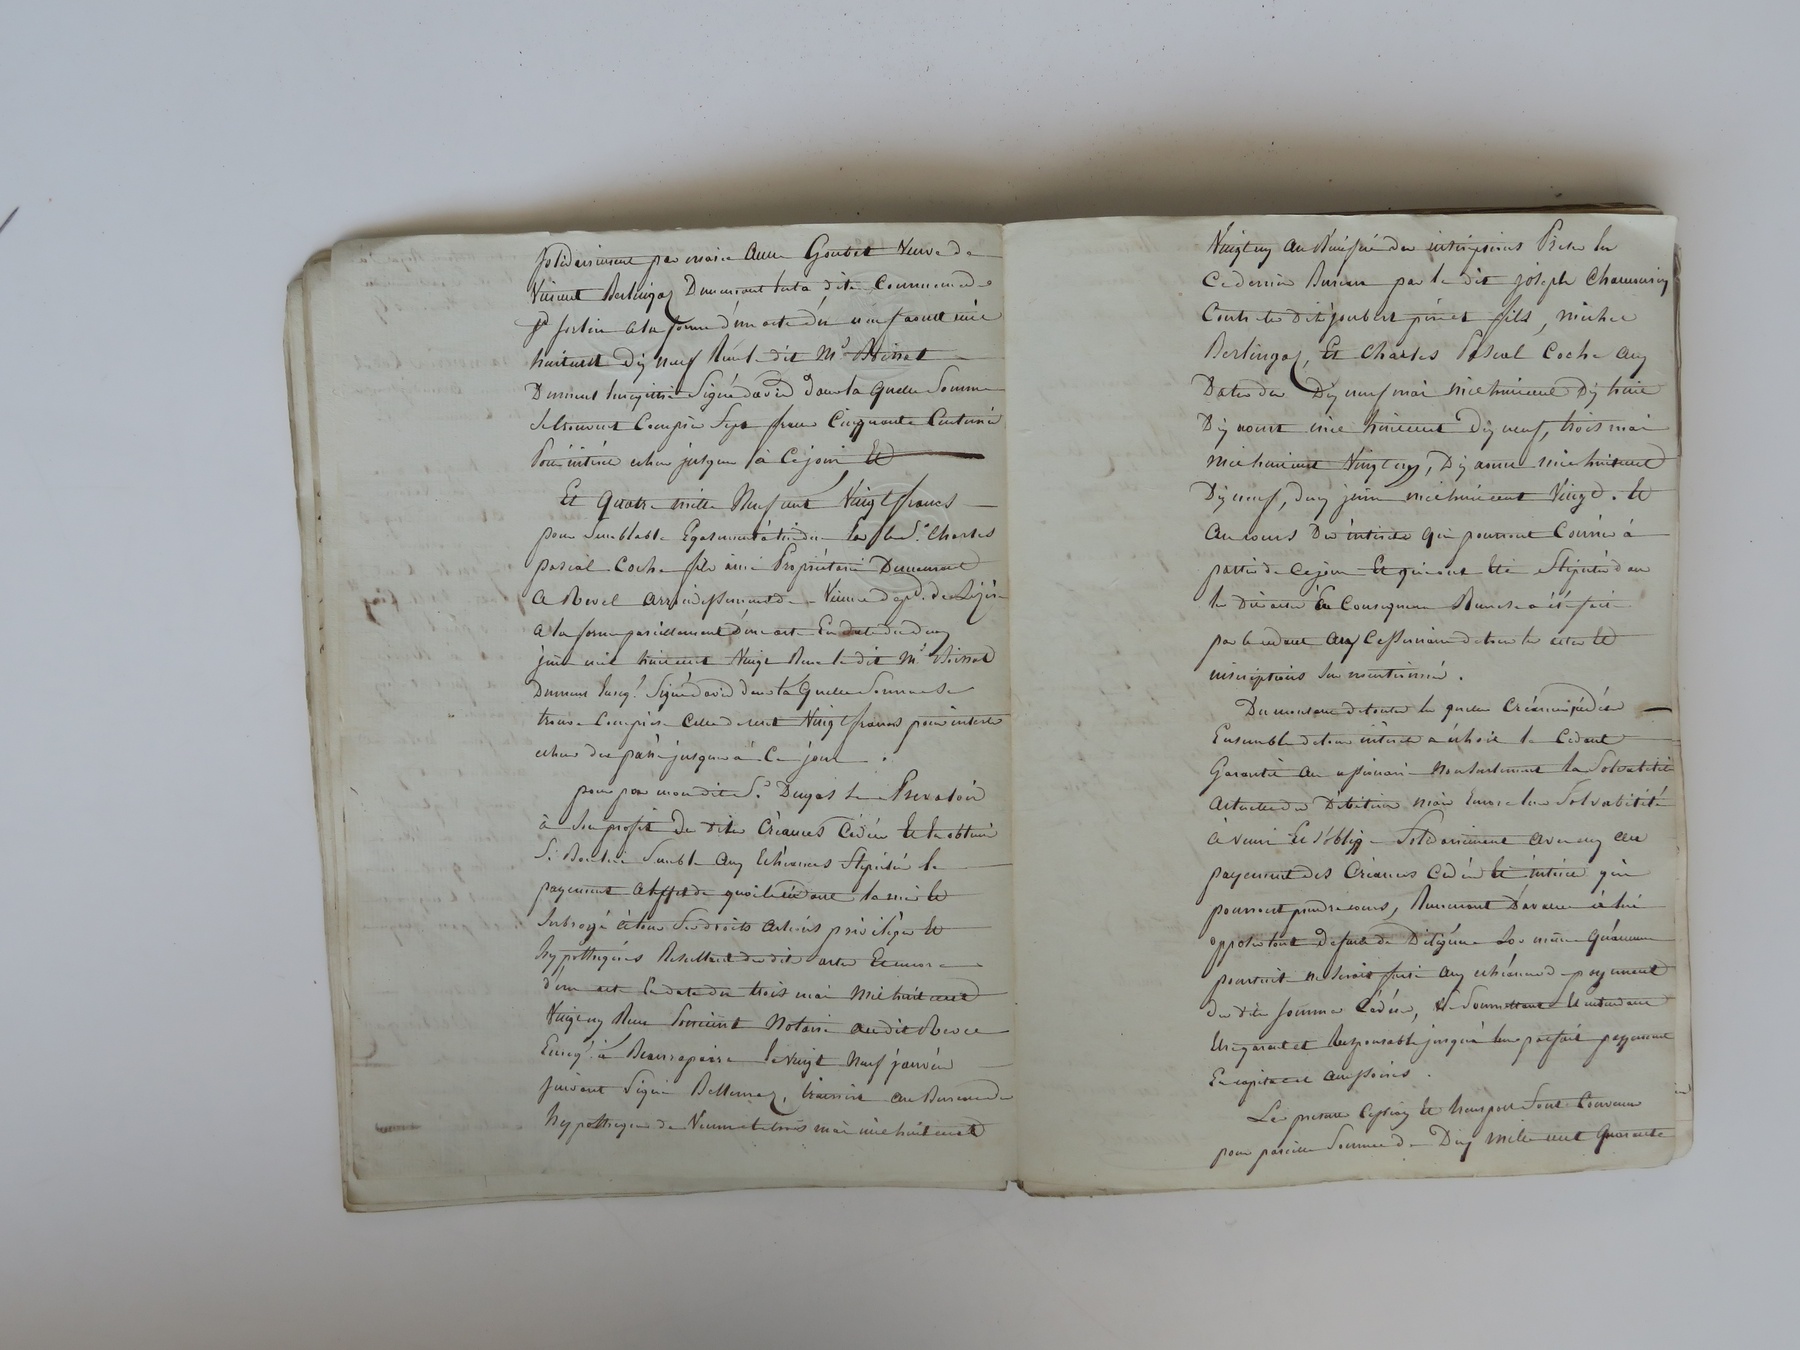 solidairement par marie anne Goubet Veuve de
Vincent Berlingaz Demeurant
St forlin a la forme d'un acte du neuf aoust mil
huitcent Dix neuf Recu le dit Me Boissat
Dument Enregistré Signé david dans la quelle Somme
se trouvent Compris Sept francs Cinquante Centimes
Pour intérêt echu jusques à Ce jour Et
Et Quatre mille Neuf cent Vingt francs
pour Semblable Egalement due Par le Sr Charles
pascal Coche fils ainé Propriétaire Demeurant
A Revel arrondissement de Vienne dept de L'izère
a la forme pareillement d'un acte En date du deux
juin mil huitcent Vingt Recu le dit Me Boissat
Dument Enregt Signé david dans la Quelle Somme se
trouve Comprise Celle de cent Vingt francs pour interet
echu du passé jusques à Ce jour .
pour par mondit Sr Dugas Se Prevaloir
à Son profit De dites Créances Cédées Et En obtenir
Si Bon lui Semble aux Echéances Stipulées le
payement a l'effet de quoi le cédant la mis Et
Subrogé à tous Ses droits actions privilèges Et
hypothèques Resultant des dits actes Et encore
d'un acte En date du trois mai mil huit cent
Vingt un Recu Notaire audit Revel
Enregt à Beaurepaire le Vingt Neuf janvier
Suivant Signé inscrit au Bureau des
hypothèques de Vienne le trois mai mil huit cent
Vingt un au Bénéfice des inscriptions Prises En
Ce dernier Bureau par le dit joseph
Contre les dits joubert père et fils, michel
Berlingaz, Et Charles Pascal Coche aux
Dates des Dix neuf mai mil huitcent Dix huit
Dix aoust mil huitcent Dix neuf, trois mai
mil huitcent Vingt un, Dix aoust mil huitcent
Dix neuf, deux juin mil huitcent Vingt . Et
au cours Des intérêts qui pourront Courrir à
partir de Ce jour Et qui ont été Stipulés dans
les Dits actes En Conséquence Remise a été faite
par le cédant aux Cessionnaire de tous les actes Et
inscriptions Sus mentionnés .
Du montant de toutes les quelles Créances Cédées
Ensemble de tous intérêts à échoir le Cédant
Garantit au cessionnaire Non Seulement la Solvabilité
actuelle des Débiteurs mais Encore leur Solvabilité
à venir Et S'oblige Solidairement avec eux au
payement des Créances Cédées Et intérêts qui
pourront prendre cours, Renoncant D'avance à lui
opposer tout Defaut de Diligence lors même Qu'aucune
poursuite ne Serait faite aux echéances de payement
des dites Sommes Cédées, Se Soumettant Et entendant
Etre garant et Responsable jusqu'à leur parfait payement
En capital et accessoires .
La présente Cession Et transport Sont Convenus
pour pareille Somme de Dix mille cent Quarante